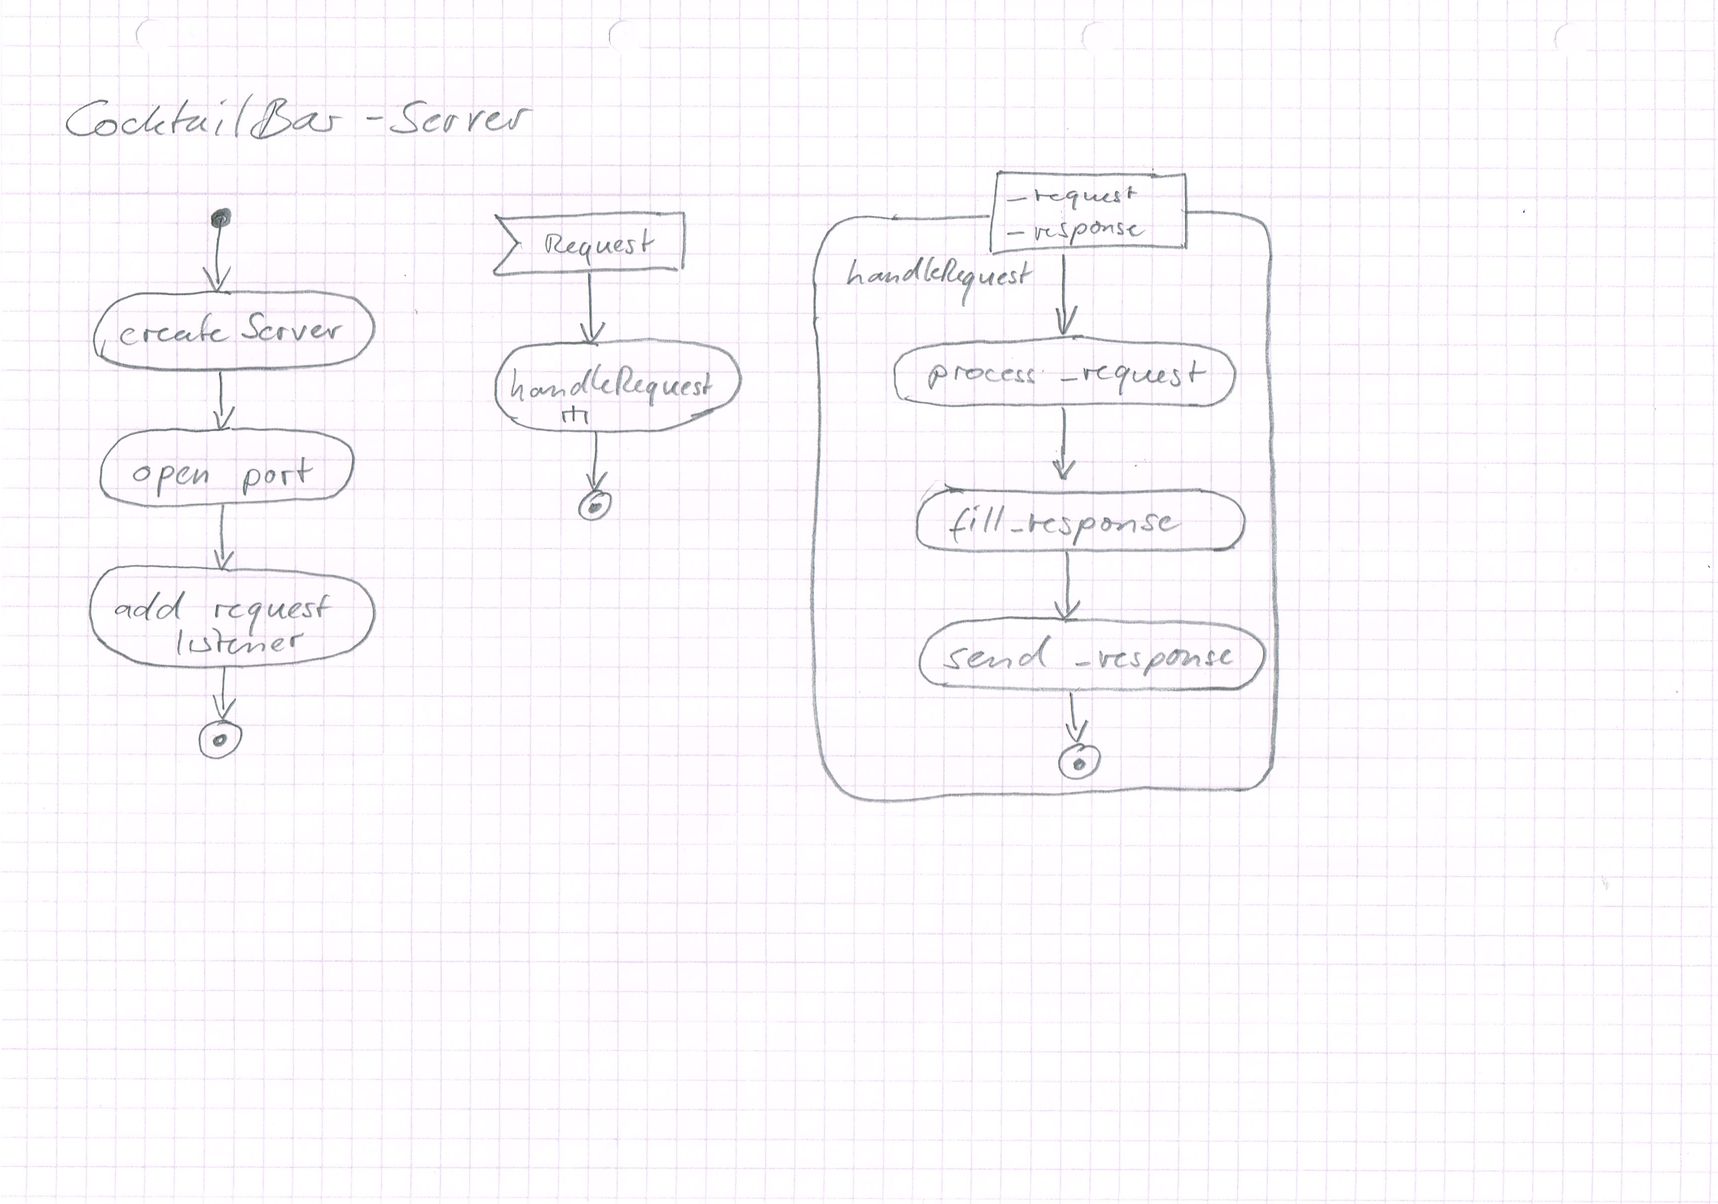 CocktailBar-Server
create Server
open port
add request
listener
Request
handleRequest
_request
_response
handleRequest
process _request
fill_response
send _response